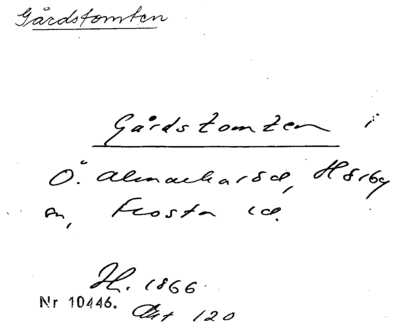 Gårdstomten
Gårdstomten i
Ö. Almaharöd, Hörby
sn, Frosta hd.
H. 1866
Nr 10446. Akt 120